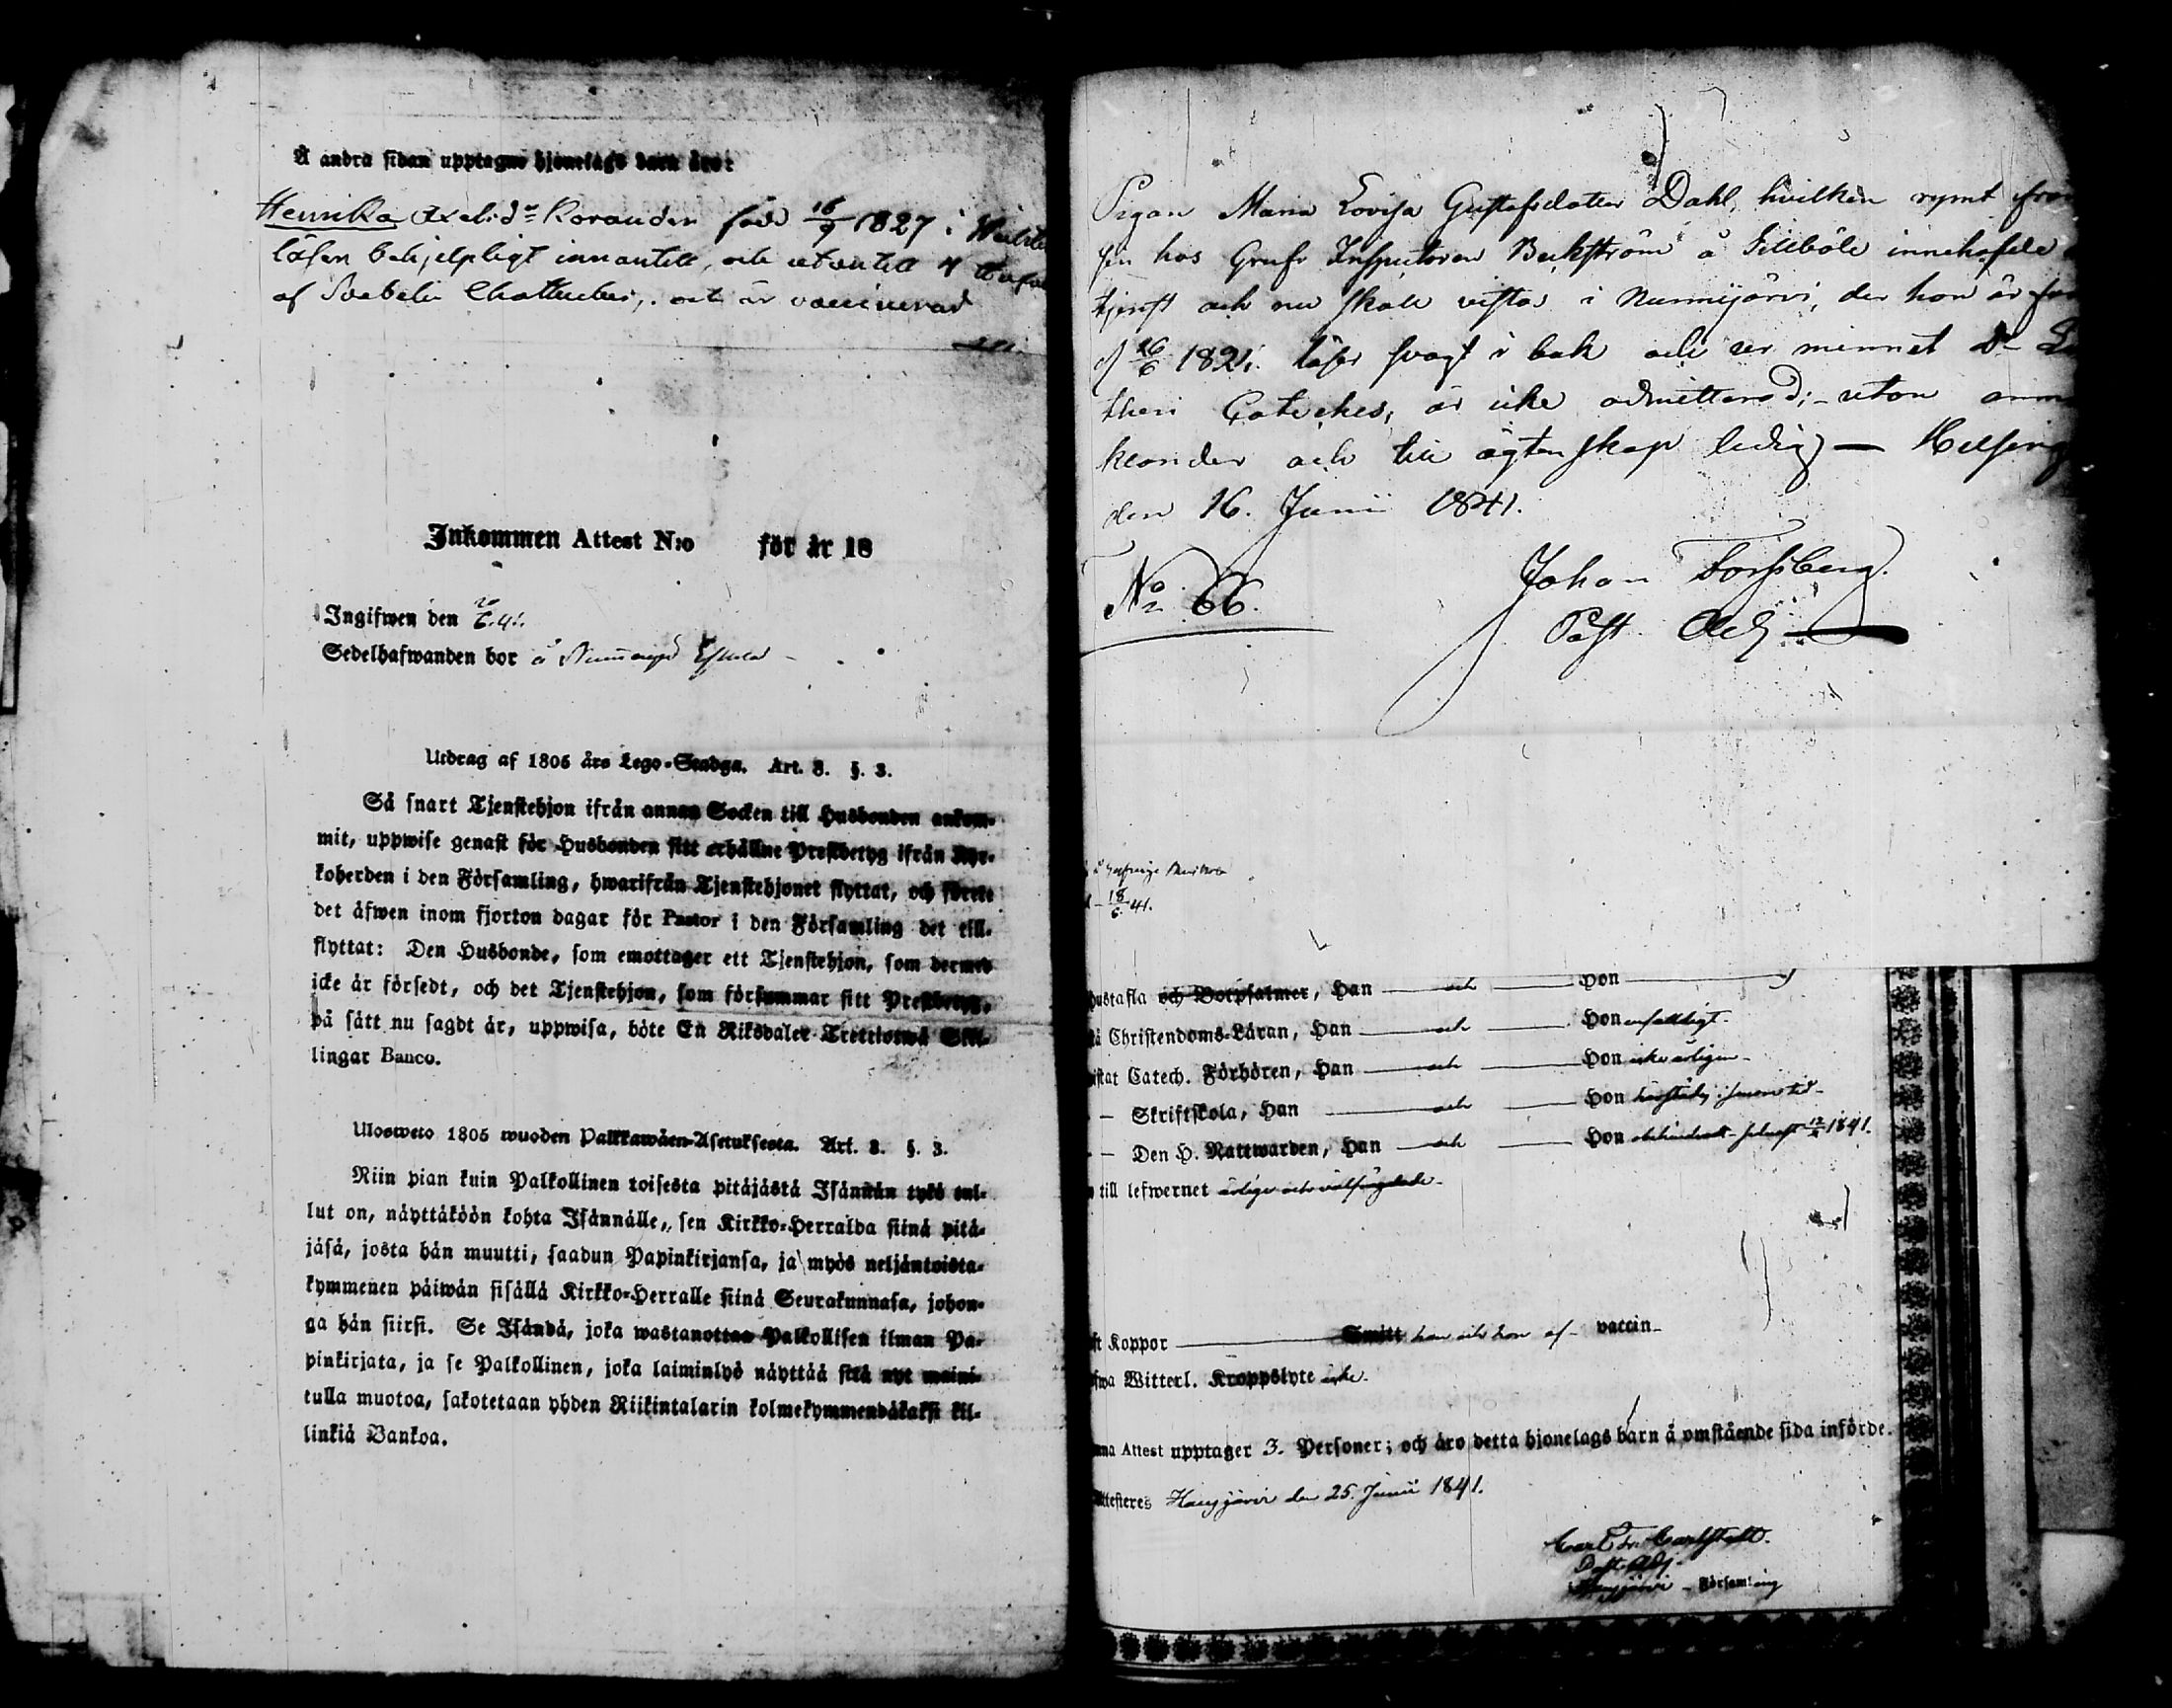 Å andra sidan upptagne hjonelags barn äro:
Henrika Axelsd:r Korander född 16/9 1827 i
läser behjelpligt innantill, och utantill
af Svebelii Catteches, och är vaccinerad
Inkommen Attest N:o för år 18
Ingifwen den 20/6 41.
Sedelhafwanden bor å
Utdrag af 1805 års Lego-Stadga. Art. 8. §. 3.
Så snart Tjenstehjon ifrån annan Socken till Husbonden ankom-
mit, uppwise genast för Husbonden sitt erhållne Prestbetyg ifrån Kyr-
koherden i den Församling, hwarifrån Tjenstehjonet flyttat, och förete
det äfwen inom fjorton dagar för Pastor i den Församling det till-
flyttat: Den Husbonde, som emottager ett Tjenstehjon, som dermed
icke är försedt, och det Tjenstehjon, som försummar sitt Prestbetyg,
på sätt nu sagdt är, uppwisa, böte En Riksdaler Trettiotwå Skil-
lingar Banco.
Ulosweto 1805 wuoden Palkkawäen-Asetuksesta. Art. 8. §. 3.
Niin pian kuin Palkollinen toisesta pitäjästä Isännän tykö tul-
lut on, näyttäköön kohta Isännälle, sen Kirkko-Herralda siinä pitä-
jäsä, josta hän muutti, saadun Papinkirjansa, ja myös neljäntoista-
kymmenen päiwän sisällä Kirkko-Herralle siinä Seurakunnasa, johon-
ga hän siirsi. Se Isändä, joka wastanottaa Palkollisen ilman Pa-
pinkirjata, ja se Palkollinen, joka laiminlyö näyttää sitä nyt maini-
tulla muotoa, sakotetaan yhden Riikintalarin kolmekymmendäkaksi kil-
linkiä Bankoa.
Pigan Maria Lovisa Gustafsdotter Dahl, hvilken rymt från
sin hos Grufv Inspectoren Beckström å Sillböle innehafde
tjenst och nu skall vistas i Nurmijärvi, der hon är född
d 26/6 1821. läser svagt i bok och ur minnet Dr Lu
theri Cateches, är icke admitterad; utan anm
klander och till ägtenskap ledig — Helsing
den 16. Junii 1841.
No 66.
Johan Forssberg.
Past. Adj.
18/6 41.
Hustafla och Botpsalmer, Han — och — Hon —
Christendoms-Läran, Han — och — Hon enfalldigt.
istat Catech. Förhören, Han — och — Hon icke årligen
— Skriftskola, Han — och — Hon i sinom tid
— Den H. Nattwarden, Han — och — Hon obehindradt 1841.
till lefwernet ärliga och välfrägdade
Koppor — Smitt han och hon af vaccin
Witterl. Kroppslyte icke.
nna Attest upptager 3. Personer; och äro detta hjonelags barn å omstående sida införde.
Attesteres Hausjärvi den 25. Junii 1841.
Carl Fr. Carlstedt.
Past. Adj.
Hausjärvi Församling